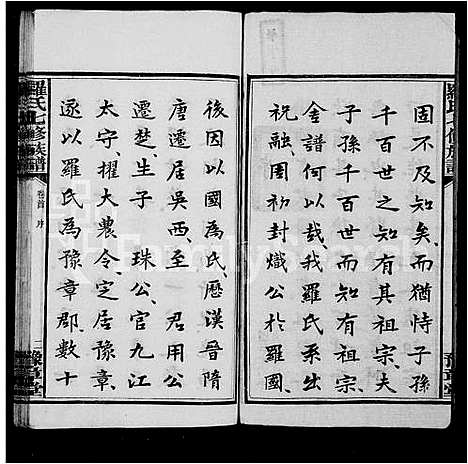 固不及知矣而猶恃子孫
千百世之知有其祖宗夫
子孫千百世而知有祖宗
舍譜何以哉我羅氏系出
祝融周初封熾公於羅國
後因以國為氏歷漢晉隋
唐遷居吳西至 君用公
遷楚生子 珠公官九江
太守擢大農令定居豫章
遂以羅氏為豫章郡數十
羅氏七修族譜
卷首 序
二
豫章堂